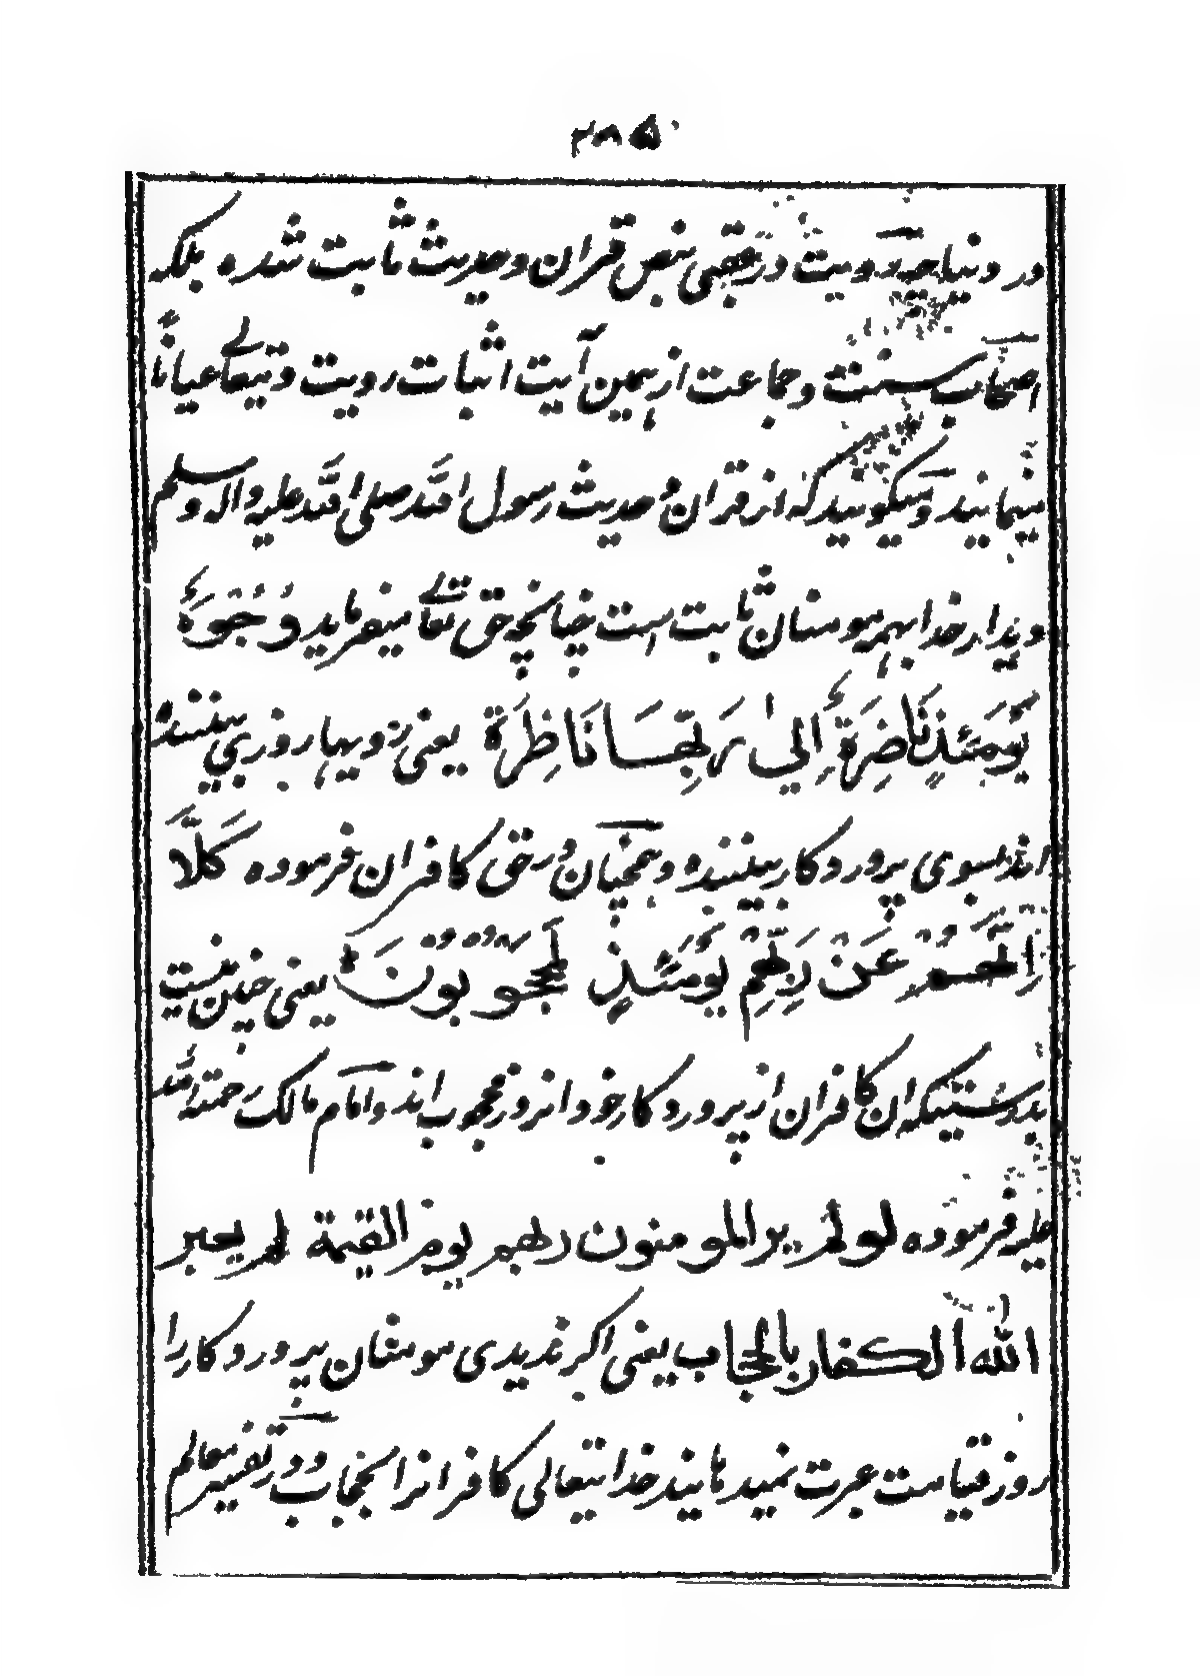 ۲۸۵
در دنیا چه رویت در عقبی بنص قران و حدیث ثابت شده بلکه
اصحاب سنت و جماعت از همین آیت اثبات رویت وتیعالے عیاناً
مینمایند و میگویند که از قران و حدیث رسول الله صلی الله علیه واله وسلم
دیدار خدا بهر مومنان ثابت است چنانچه حق تعالے میفرماید وُجُوهٌ
يَوْمَئِذٍ نَاضِرَةٌ إِلىٰ رَبِّهَا نَاظِرَةٌ یعنی رویها روزی بیننده
اند بسوی پروردگار بیننده و همچنان در حق کافران فرموده كَلَّا
إِنَّهُمْ عَنْ رَبِّهِمْ يَوْمَئِذٍ لَمَحْجُوبُونَ یعنی چنین نیست
بدرستیکه آن کافران از پروردگار خود انروز محجوب اند و امام مالک رحمة الله
علیه فرموده لو لم یر المومنون ربهم یوم القیمة لم یعیر
الله الکفار بالحجاب یعنی اگر ندیدی مومنان پروردگار را
روز قیامت عیرت نمیدهانید خدایتعالی کافرانرا بحجاب و در تفسیر معالم